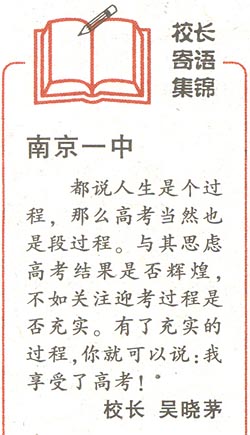 校长
寄语
集锦
南京一中
都说人生是个过
程，那么高考当然也
是段过程。与其思虑
高考结果是否辉煌，
不如关注迎考过程是
否充实。有了充实的
过程，你就可以说：我
享受了高考！
校长 吴晓茅